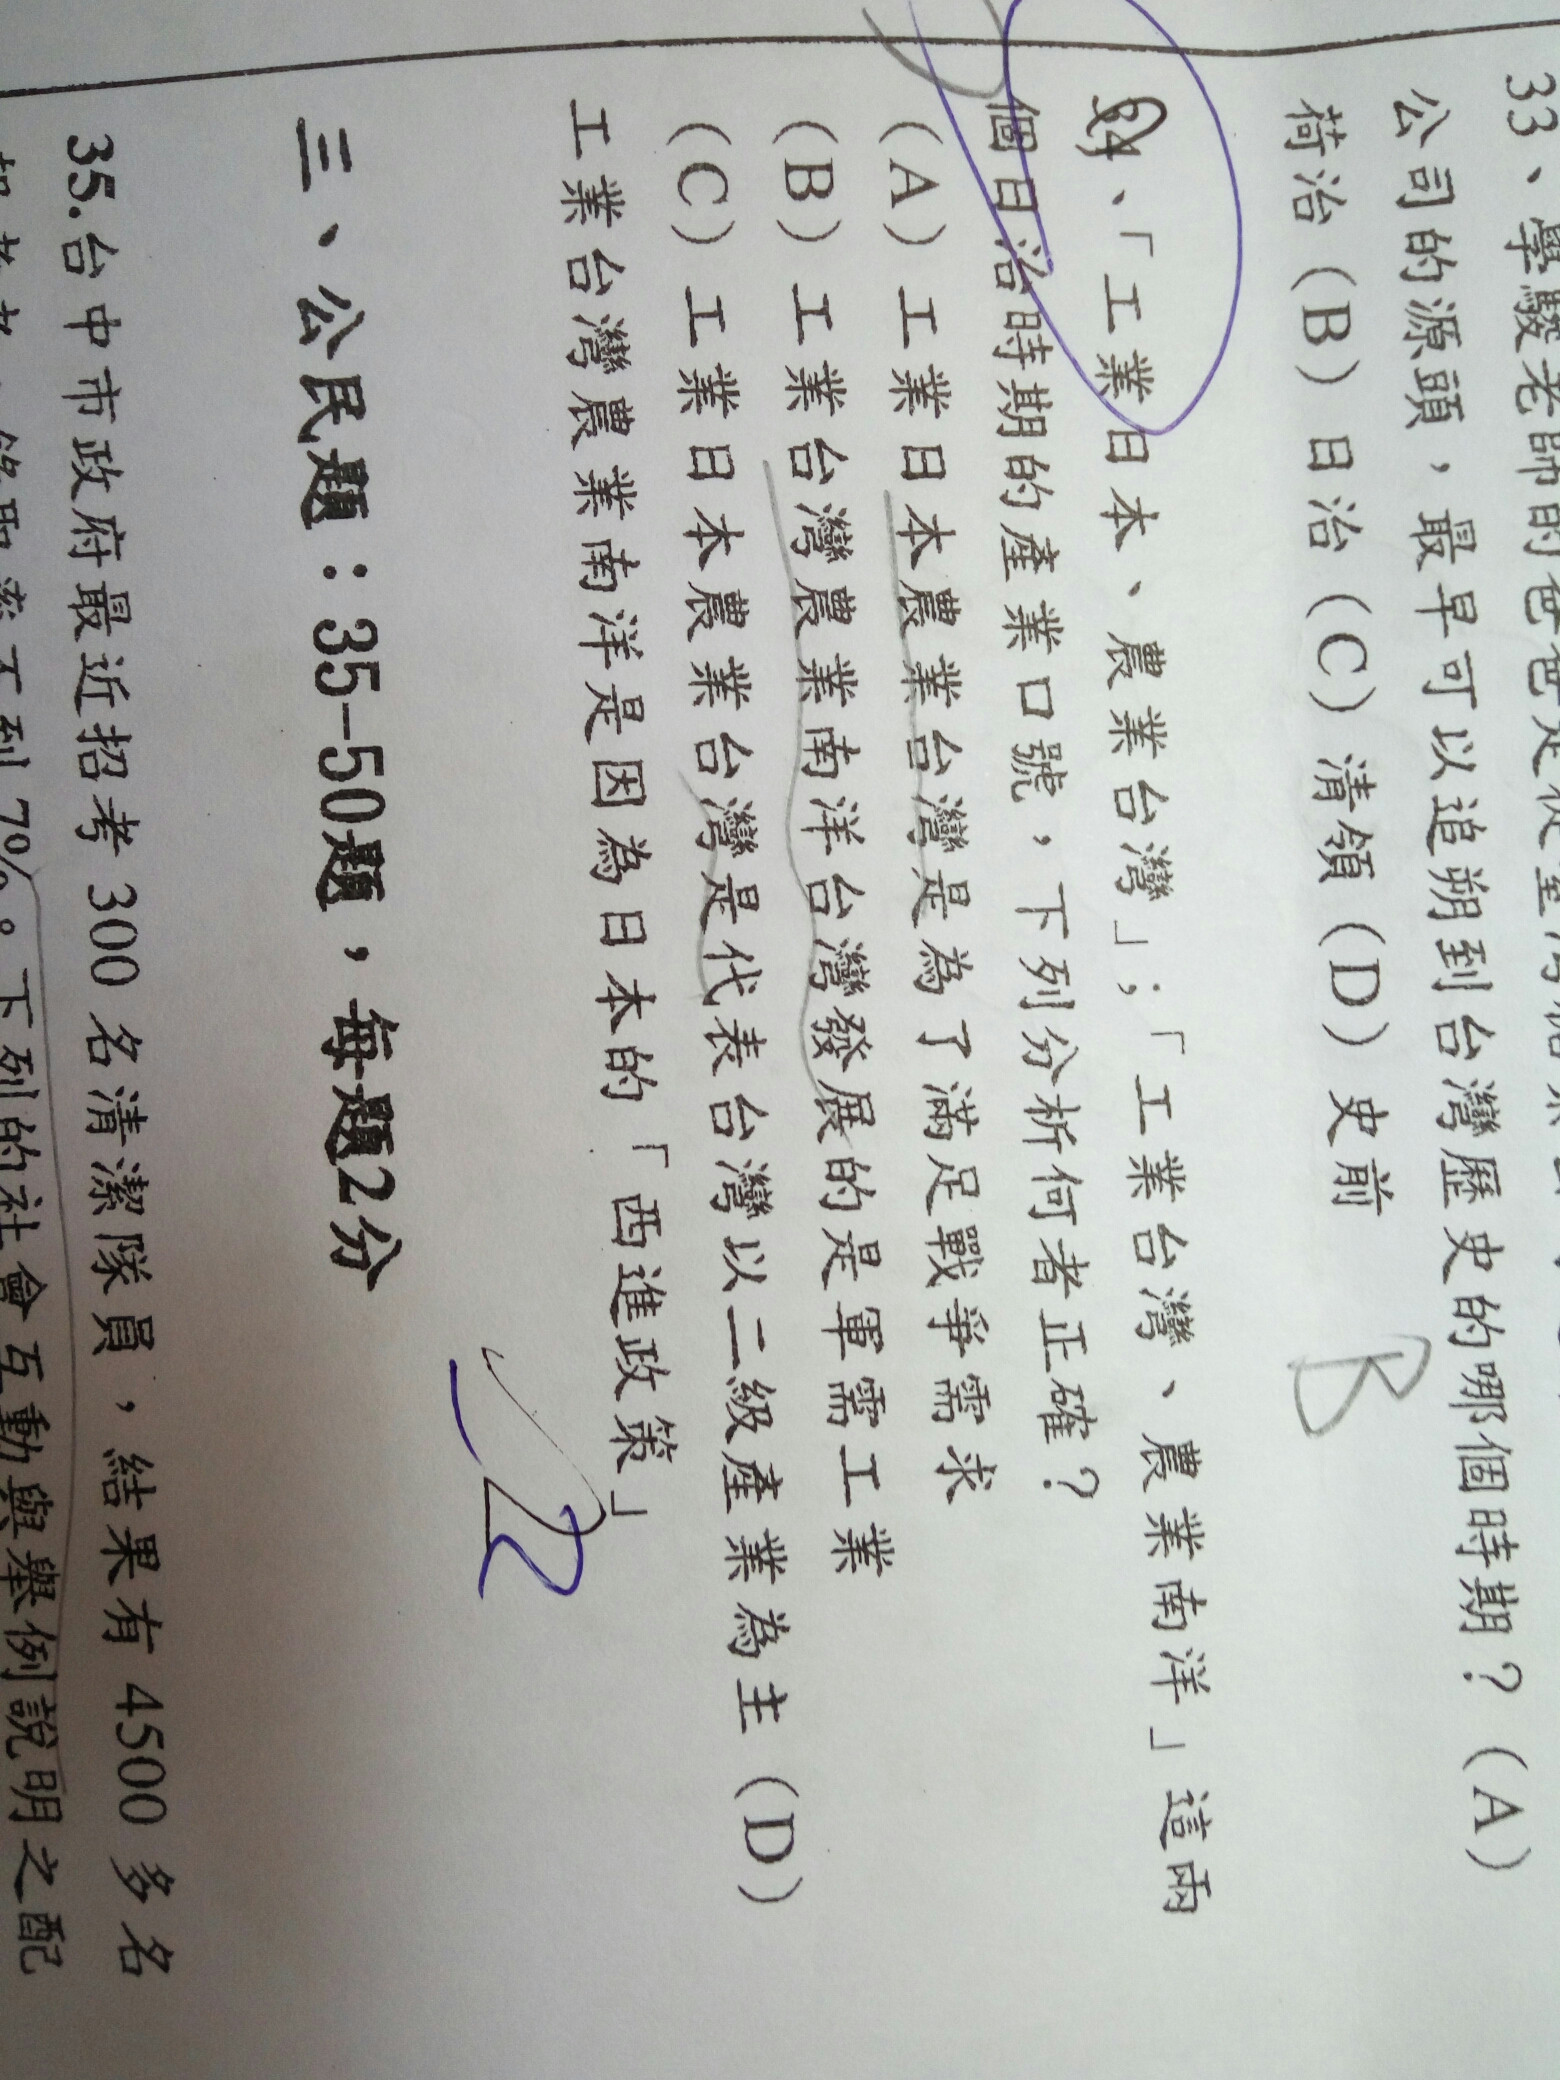 33、學駿老師的爸爸是從
公司的源頭，最早可以追朔到台灣歷史的哪個時期？（A）
荷治（B）日治（C）清領（D）史前
B
34、「工業日本、農業台灣」；「工業台灣、農業南洋」這兩
個日治時期的產業口號，下列分析何者正確？
（A）工業日本農業台灣是為了滿足戰爭需求
（B）工業台灣農業南洋台灣發展的是軍需工業
（C）工業日本農業台灣是代表台灣以二級產業為主（D）
工業台灣農業南洋是因為日本的「西進政策」
三、公民題：35-50題，每題2分
35.台中市政府最近招考300名清潔隊員，結果有4500多名
到7%。下列的社會互動與舉例說明之配